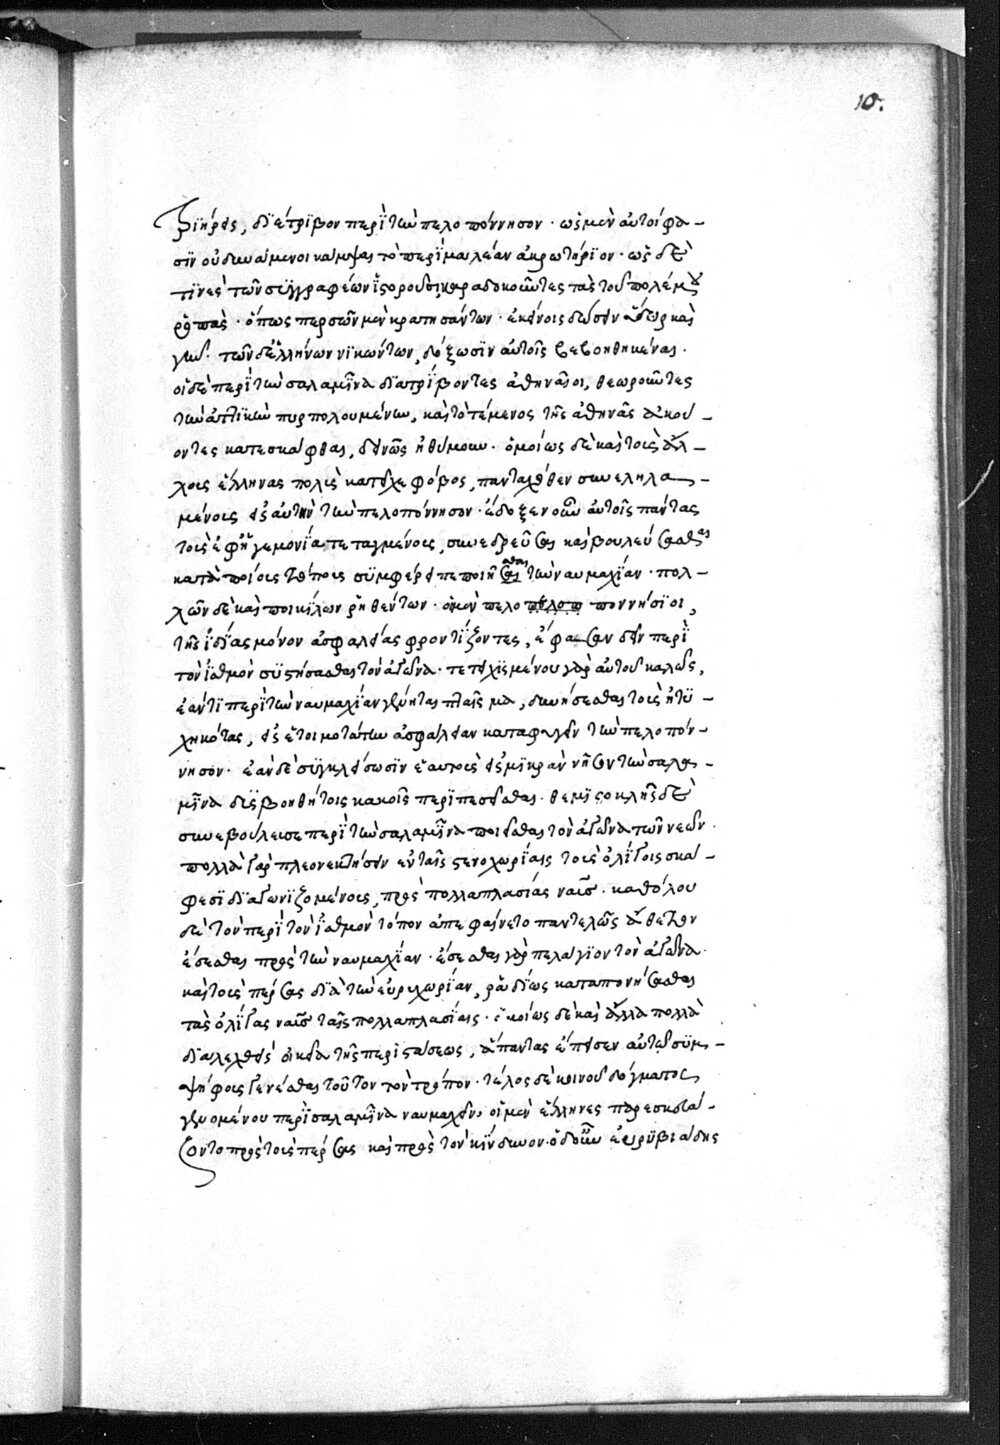 10.
τριήρεις, διέτριβον περὶ τὴν πελοπόννησον · ὡς μὲν αὐτοί φα-
σὶν οὐ δυνάμενοι κάμψαι τὸ περὶ μαλέαν ἀκρωτήριον · ὡς δὲ
τινὲς τῶν συγγραφέων ἱστοροῦσι, καραδοκοῦντες τὰς τοῦ πολέμου
ῥοπὰς · ὅπως περσῶν μὲν κρατησάντων · ἐκείνοις δώσειν ὕδωρ καὶ
γῆν · τῶν δὲ ἑλλήνων νικώντων, δόξωσιν αὐτοῖς βεβοηθηκέναι ·
οἱ δὲ περὶ τὴν σαλαμῖνα διατρίβοντες ἀθηναῖοι, θεωροῦντες
τὴν ἀττικὴν πυρπολουμένην, καὶ τὸ τέμενος τῆς ἀθηνᾶς ἀκού-
οντες κατεσκάφθαι, δεινῶς ἠθύμουν · ὁμοίως δὲ καὶ τοὺς ἄλ-
λους ἕλληνας πολὺς κατεῖχε φόβος, πανταχόθεν συνεληλα-
μένους εἰς αὐτὴν τὴν πελοπόννησον · ἔδοξεν οὖν αὐτοῖς πάντας
τοὺς ἐφ' ἡγεμονίας τεταγμένους, συνεδρεῦσαι καὶ βουλεύσασθαι
κατὰ ποίους τόπους συμφέρει πεποιῆσθαι τὴν ναυμαχίαν · πολ-
λῶν δὲ καὶ ποικίλων ῥηθέντων · οἱ μὲν πελο πελοπ ποννήσιοι,
τῆς ἰδίας μόνον ἀσφαλείας φροντίζοντες, ἔφασαν δεῖν περὶ
τὸν ἰσθμὸν συστήσασθαι τὸν ἀγῶνα · τετειχισμένου γὰρ αὐτοῦ καλῶς,
ἐάν τι περὶ τὴν ναυμαχίαν γένηται πταῖσμα, δυνήσεσθαι τοὺς ἠτυ-
χηκότας, εἰς ἑτοιμοτάτην ἀσφάλειαν καταφυγεῖν τὴν πελοπόν-
νησον · ἐὰν δὲ συγκλείσωσιν ἑαυτοὺς εἰς μικρὰν νῆσον τὴν σαλα-
μῖνα δυσβοηθήτοις κακοῖς περιπεσεῖσθαι · θεμιστοκλῆς δὲ
συνεβούλευσε περὶ τὴν σαλαμῖνα ποιεῖσθαι τὸν ἀγῶνα τῶν νεῶν ·
πολλὰ γὰρ πλεονεκτήσειν ἐν ταῖς στενοχωρίαις τοὺς ὀλίγοις σκά-
φεσι διαγωνιζομένους, πρὸς πολλαπλασίας ναῦς · καθόλου
δὲ τὸν περὶ τὸν ἰσθμὸν τόπον ἀπεφαίνετο παντελῶς ἄθετον
ἔσεσθαι πρὸς τὴν ναυμαχίαν · ἔσεσθαι γὰρ πελάγιον τὸν ἀγῶνα ·
καὶ τοὺς πέρσας διὰ τὴν εὐρυχωρίαν, ῥαδίως καταπονήσεσθαι
τὰς ὀλίγας ναῦς ταῖς πολλαπλασίαις · ὁμοίως δὲ καὶ ἄλλα πολλὰ
διαλεχθεὶς οἰκεῖα τῆς περιστάσεως, ἅπαντας ἔπεισεν αὐτῷ συμ-
ψήφους γενέσθαι τοῦτον τὸν τρόπον · τέλος δὲ κοινοῦ δόγματος
γενομένου περὶ σαλαμῖνα ναυμαχεῖν, οἱ μὲν ἕλληνες παρεσκευά-
ζοντο πρὸς τοὺς πέρσας καὶ πρὸς τὸν κίνδυνον · ὁ δ' οὖν εὐρυβιάδης